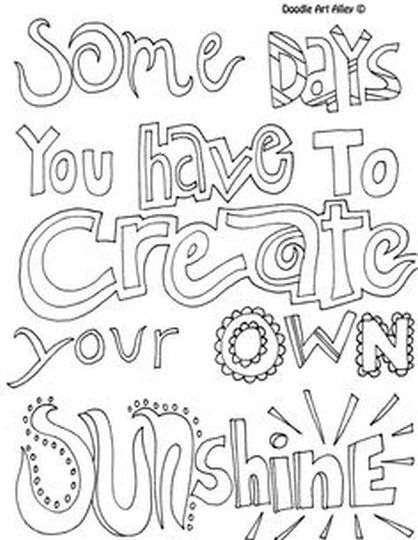 Doodle Art Alley ©
Some Days
You have To
Create
your OWN
Sunshine